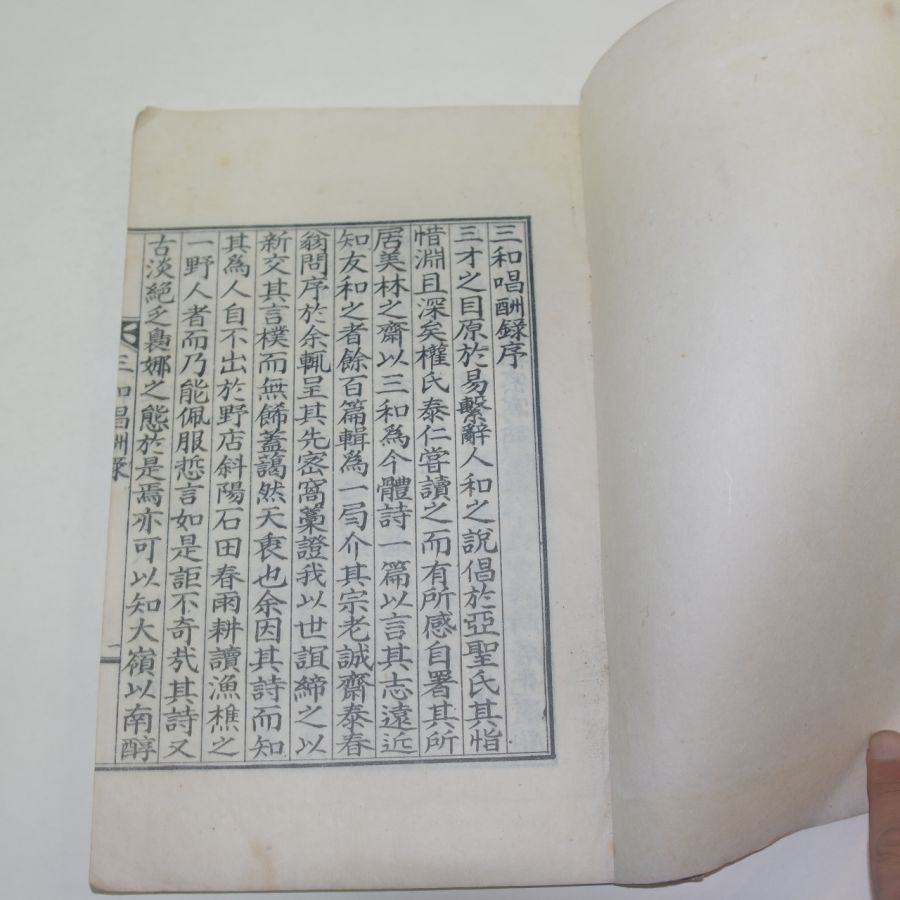 三和唱酬錄序
三才之目原於易繫辭人和之說倡於亞聖氏其恉
惜淵且深矣權氏泰仁嘗讀之而有所感自署其所
居美林之齋以三和爲今體詩一篇以言其志遠近
知友和之者餘百篇輯爲一局介其宗老誠齋泰春
翁問序於余輒呈其先密窩藁證我以世誼締之以
新交其言樸而無餙蓋藹然天衷也余因其詩而知
其爲人自不出於野店斜陽石田春雨耕讀漁樵之
一野人者而乃能佩服悊言如是詎不奇哉其詩又
古淡絕乏裊娜之態於是焉亦可以知大嶺以南醇
三和唱酬錄
一